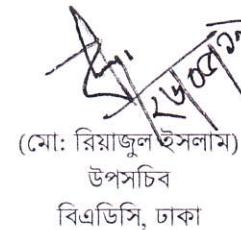 (মো: রিয়াজুল ইসলাম)
উপসচিব
বিএডিসি, ঢাকা